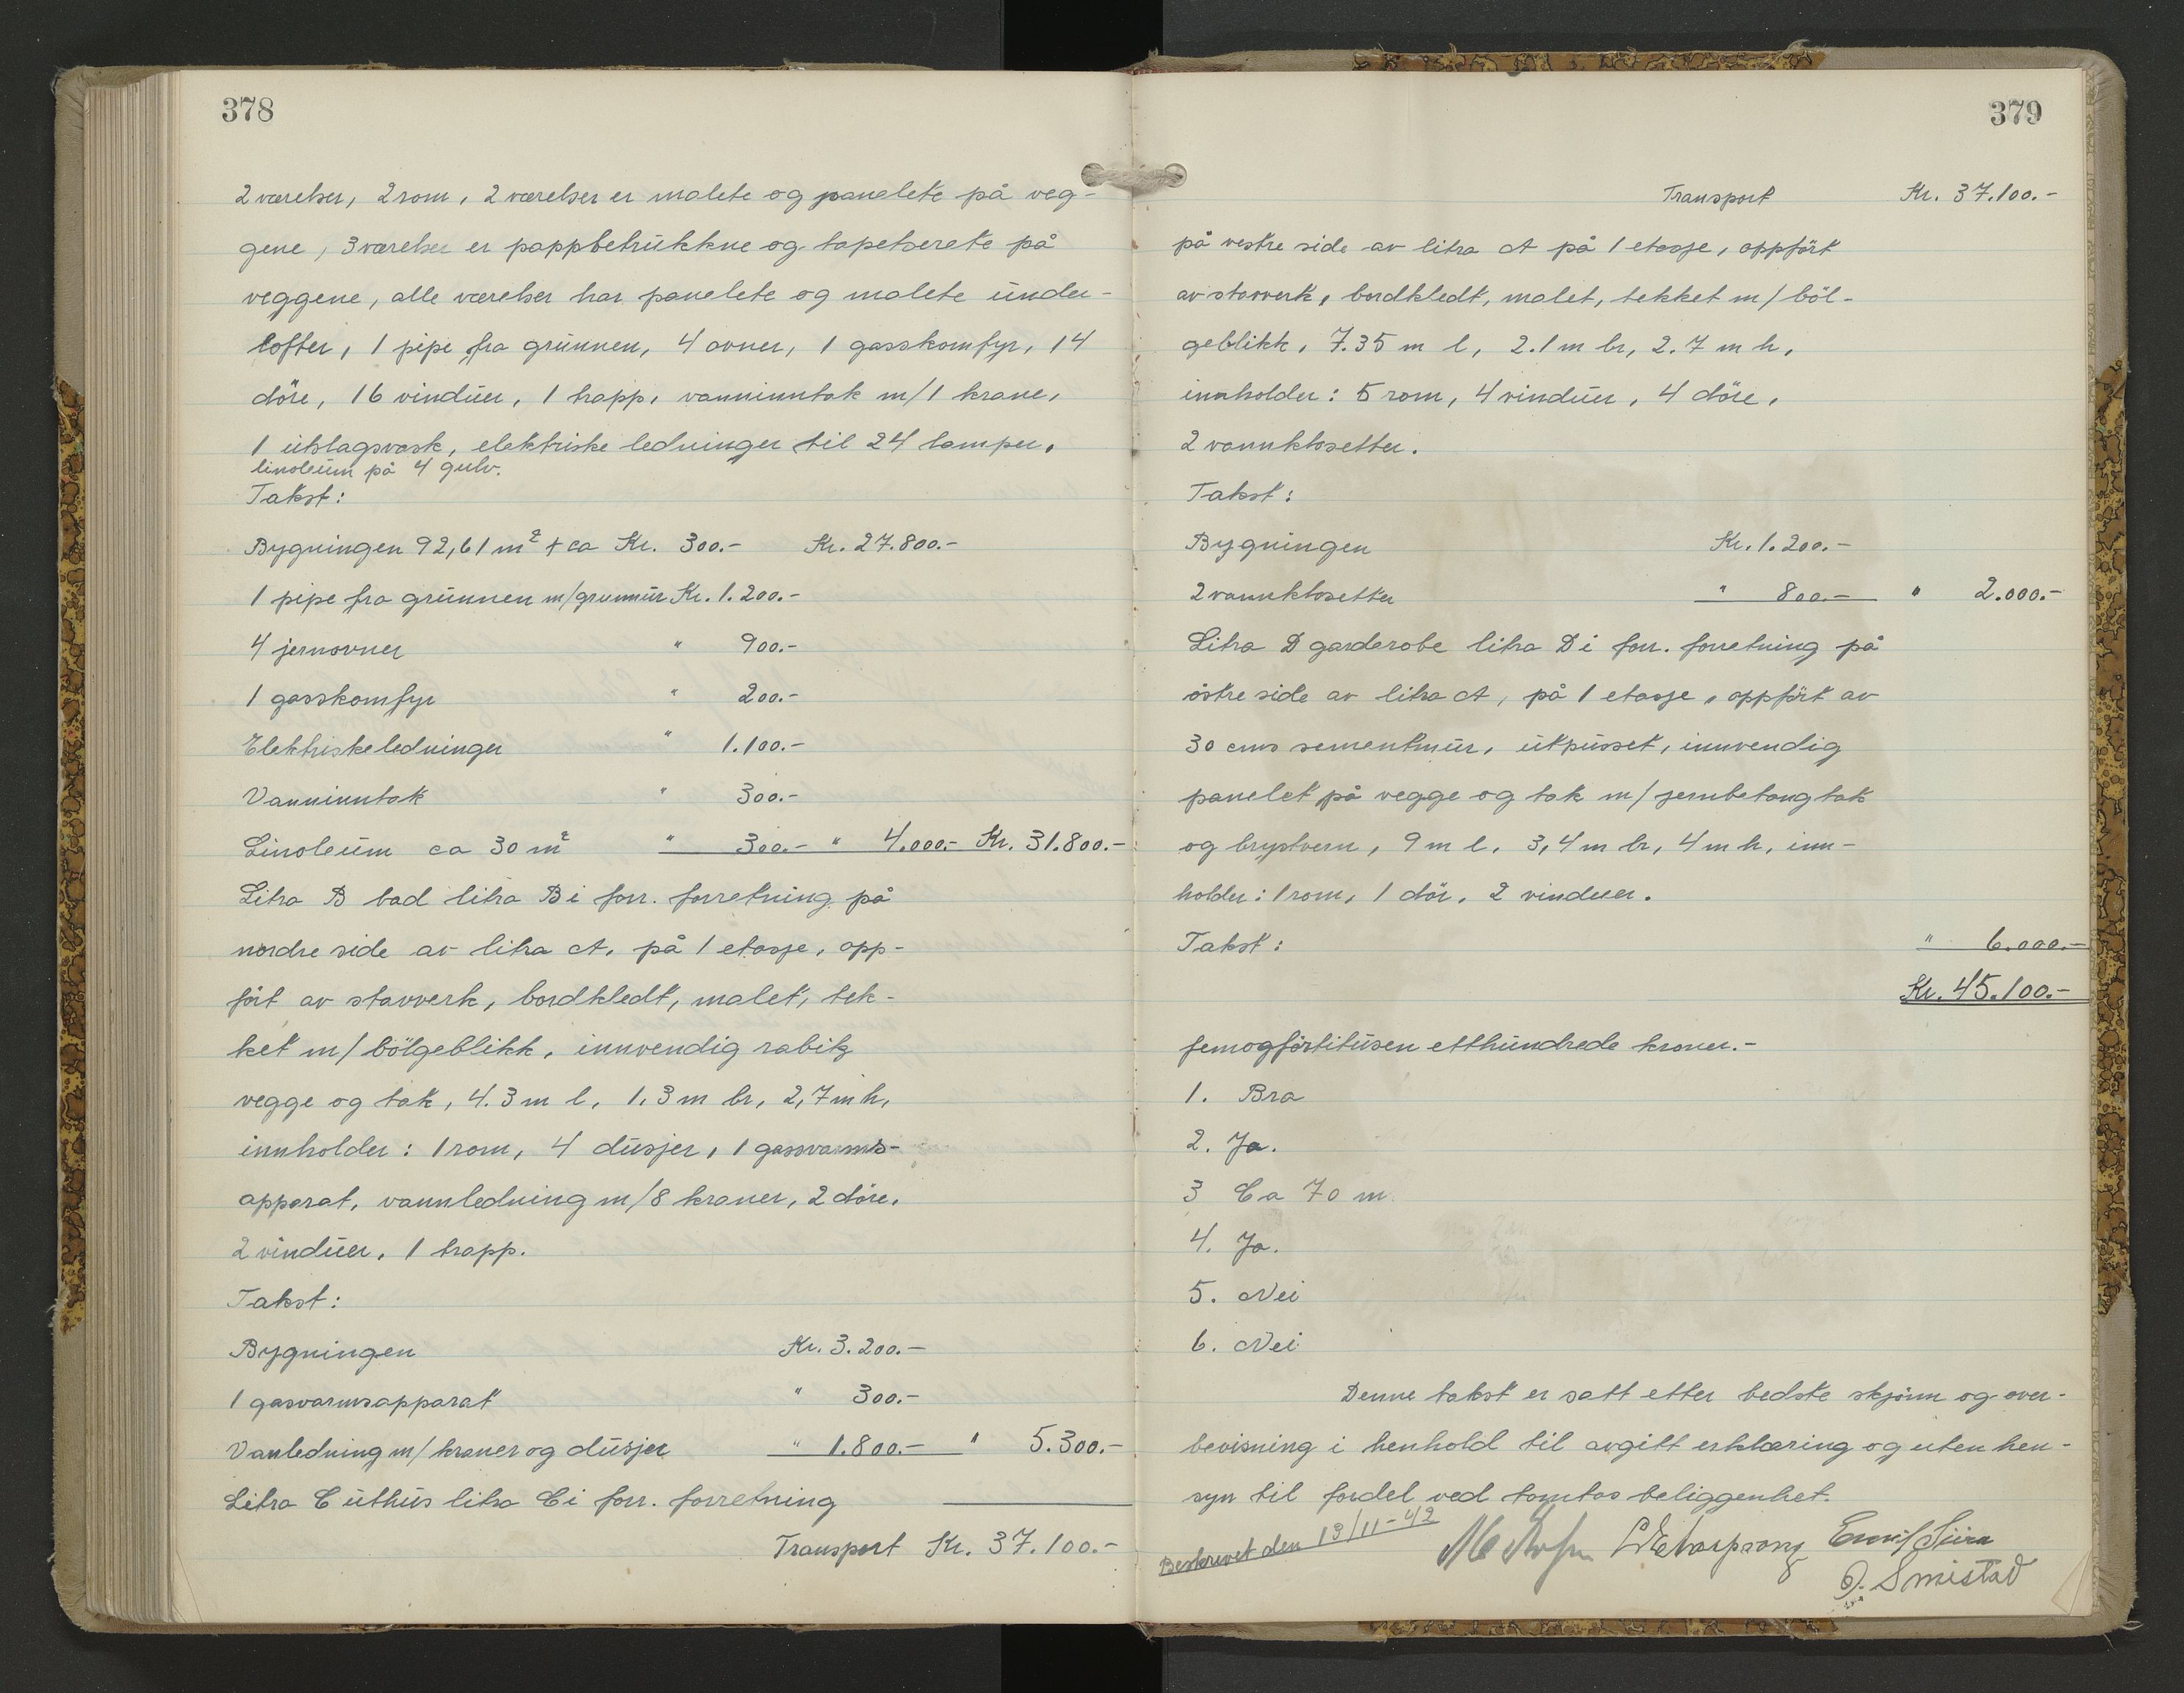 378
2 værelser, 2 rom, 2 værelser er malete og panelete på veg-
gene, 3 værelser er pappbetrukkne og tapetserete på
veggene, alle værelser har panelete og malete under-
lofter, 1 pipe fra grunnen, 4 ovner, 1 gasskomfyr, 14
döre, 16 vinduer, 1 trapp, vanninntak m/1 krane,
1 utslagsvask, elektriske ledninger til 24 lamper,
linoleum på 4 gulv.
Takst:
Bygningen 92,61 m² + ca Kr. 300.- Kr. 27.800.-
1 pipe fra grunnen m/grunmur Kr. 1.200.-
4 jernovner " 900.-
1 gasskomfyr " 200.-
Elektriske ledninger " 1.100.-
Vanninntak " 300.-
Linoleum ca 30 m² " 300.- " 4.000.- Kr. 31.800.-
Litra B bad litra B i forr. forretning på
nordre side av litra A, på 1 etasje, opp-
fört av stavverk, bordkledt, malet, tek-
ket m/bölgeblikk, innvendig rabitz
vegge og tak, 4.3 m l, 1.3 m br, 2,7 m h,
innholder: 1 rom, 4 dusjer, 1 gassvarms-
apparat, vannledning m/8 kraner, 2 döre,
2 vinduer, 1 trapp.
Takst:
Bygningen Kr. 3.200.-
1 gasvarmsapparat " 300.-
Vanledning m/kraner og dusjer " 1.800.- " 5.300.-
Litra C uthus litra C i forr. forretning
Transport Kr. 37.100.-
379
Transport Kr. 37.100.-
på vestre side av litra A på 1 etasje, oppfört
av stavverk, bordkledt, malet, tekket m/böl-
geblikk, 7.35 m l, 2.1 m br, 2.7 m h,
innholder: 5 rom, 4 vinduer, 4 döre,
2 vannklosetter.
Takst:
Bygningen Kr. 1.200.-
2 vannklosetter " 800.- " 2.000.-
Litra D garderobe litra D i forr. forretning på
östre side av litra A, på 1 etasje, oppfört av
30 cms sementmur, utpusset, innvendig
panelet på vegge og tak m/jernbetongtak
og brystvern, 9 m l, 3,4 m br, 4 m h, inn-
holder: 1 rom, 1 dör, 2 vinduer.
Takst: " 6.000.-
Kr. 45.100.-
femogförtitusen etthundrede kroner.-
1. Bra
2. Ja.
3 Ca 70 m.
4. Ja.
5. Nei
6. Nei
Denne takst er satt etter bedste skjönn og over-
bevisning i henhold til avgitt erklæring og uten hen-
syn til fordel ved tomtas beliggenhet.
Beskrevet den 13/11-42
O. Smistad